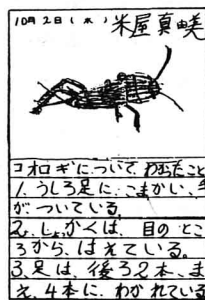 10月2日(水) 米屋真由美
コオロギについてわかったこと
1.うしろ足に、こまかい、毛
がついている。
2.しょっかくは、目のとこ
ろから、はえている。
3.足は、後ろ2本、ま
え、4本に、わかれている